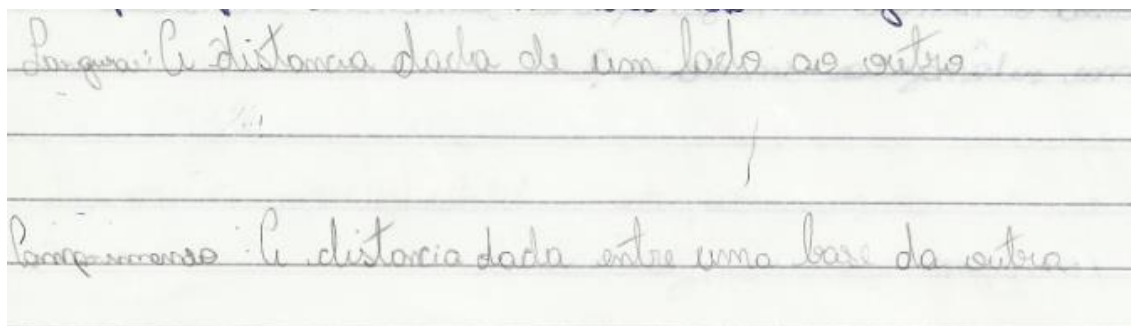 Largura: A distancia dada de um lado ao outro
A distancia dada entre uma base da outra.